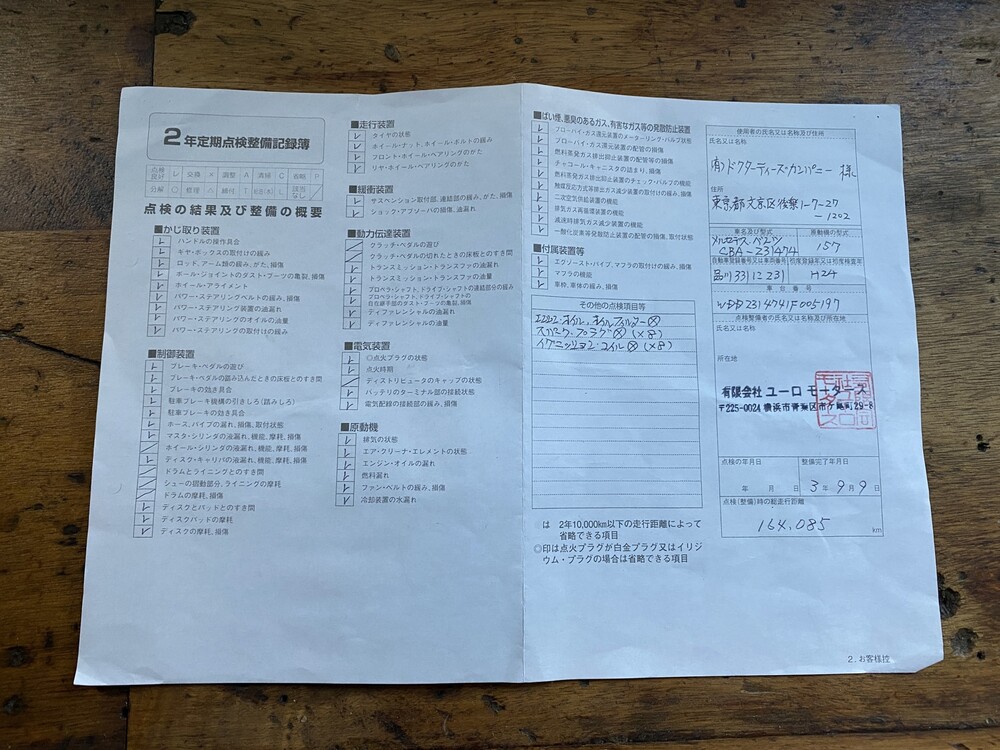 2年定期点検整備記録簿
点検良好 レ 交換 × 調整 A 清掃 C 省略 P
分解 ○ 修理 △ 締付 T 給油(水) L 該当なし /
点検の結果及び整備の概要
■かじ取り装置
レ ハンドルの操作具合
レ ギヤ・ボックスの取付けの緩み
レ ロッド、アーム類の緩み、がた、損傷
レ ボール・ジョイントのダスト・ブーツの亀裂、損傷
レ ホイール・アライメント
レ パワー・ステアリングベルトの緩み、損傷
レ パワー・ステアリング装置の油漏れ
レ パワー・ステアリングのオイルの油量
レ パワー・ステアリングの取付けの緩み
■制御装置
レ ブレーキ・ペダルの遊び
レ ブレーキ・ペダルの踏み込んだときの床板とのすき間
レ ブレーキの効き具合
レ 駐車ブレーキ機構の引きしろ(踏みしろ)
レ 駐車ブレーキの効き具合
レ ホース、パイプの漏れ、損傷、取付状態
レ マスタ・シリンダの液漏れ、機能、摩耗、損傷
/ ホイール・シリンダの液漏れ、機能、摩耗、損傷
レ ディスク・キャリパの液漏れ、機能、摩耗、損傷
/ ドラムとライニングとのすき間
/ シューの摺動部分、ライニングの摩耗
/ ドラムの摩耗、損傷
レ ディスクとパッドとのすき間
レ ディスクパッドの摩耗
レ ディスクの摩耗、損傷
■走行装置
レ タイヤの状態
レ ホイール・ナット、ホイール・ボルトの緩み
レ フロント・ホイール・ベアリングのがた
レ リヤ・ホイール・ベアリングのがた
■緩衝装置
レ サスペンション取付部、連結部の緩み、がた、損傷
レ ショック・アブソーバの損傷、油漏れ
■動力伝達装置
/ クラッチ・ペダルの遊び
/ クラッチ・ペダルの切れたときの床板とのすき間
レ トランスミッション・トランスファの油漏れ
レ トランスミッション・トランスファの油量
レ プロペラ・シャフト、ドライブ・シャフトの連結部の緩み
レ プロペラ・シャフト、ドライブ・シャフトの自在継手部のダスト・ブーツの亀裂、損傷
レ ディファレンシャルの油漏れ
レ ディファレンシャルの油量
■電気装置
レ ◎点火プラグの状態
レ 点火時期
/ ディストリビュータのキャップの状態
レ バッテリのターミナル部の接続状態
レ 電気配線の接続部の緩み、損傷
■原動機
レ 排気の状態
レ エア・クリーナ・エレメントの状態
レ エンジン・オイルの漏れ
レ 燃料漏れ
レ ファン・ベルトの緩み、損傷
レ 冷却装置の水漏れ
■ばい煙、悪臭のあるガス、有害なガス等の発散防止装置
レ ブローバイ・ガス還元装置のメターリング・バルブ状態
レ ブローバイ・ガス還元装置の配管の損傷
レ 燃料蒸発ガス排出抑止装置の配管等の損傷
レ チャコール・キャニスタの詰まり、損傷
レ 燃料蒸発ガス排出抑止装置のチェック・バルブの機能
レ 触媒反応方式等排出ガス減少装置の取付けの緩み、損傷
レ 二次空気供給装置の機能
レ 排気ガス再循環装置の機能
レ 減速時排気ガス減少装置の機能
レ 一酸化炭素等発散防止装置の配管の損傷、取付状態
■付属装置等
レ エグゾースト・パイプ、マフラの取付けの緩み、損傷
レ マフラの機能
レ 車枠、車体の緩み、損傷
その他の点検項目等
エンジン・オイル、オイルフィルター⊗
スパーク・プラグ⊗(×8)
イグニッション・コイル⊗(×8)
は 2年10,000km以下の走行距離によって
省略できる項目
◎印は点火プラグが白金プラグ又はイリジ
ウム・プラグの場合は省略できる項目
使用者の氏名又は名称及び住所
氏名又は名称
(有)ドクターディーズ・カンパニー 様
住所
東京都文京区後楽1-7-27
-1202
車名及び型式 原動機の型式
メルセデス・ベンツ
CBA-231474 157
自動車登録番号又は車両番号 初度登録年又は初度検査年
品川331 に 231 H24
車台番号
WDD2314741F005197
点検整備者の氏名又は名称及び所在地
氏名又は名称
所在地
有限会社 ユーロ モータース
〒225-0024 横浜市青葉区市ケ尾町29-8
点検の年月日 整備完了年月日
年 月 日 3年9月9日
点検(整備)時の総走行距離
164,085 km
2. お客様控